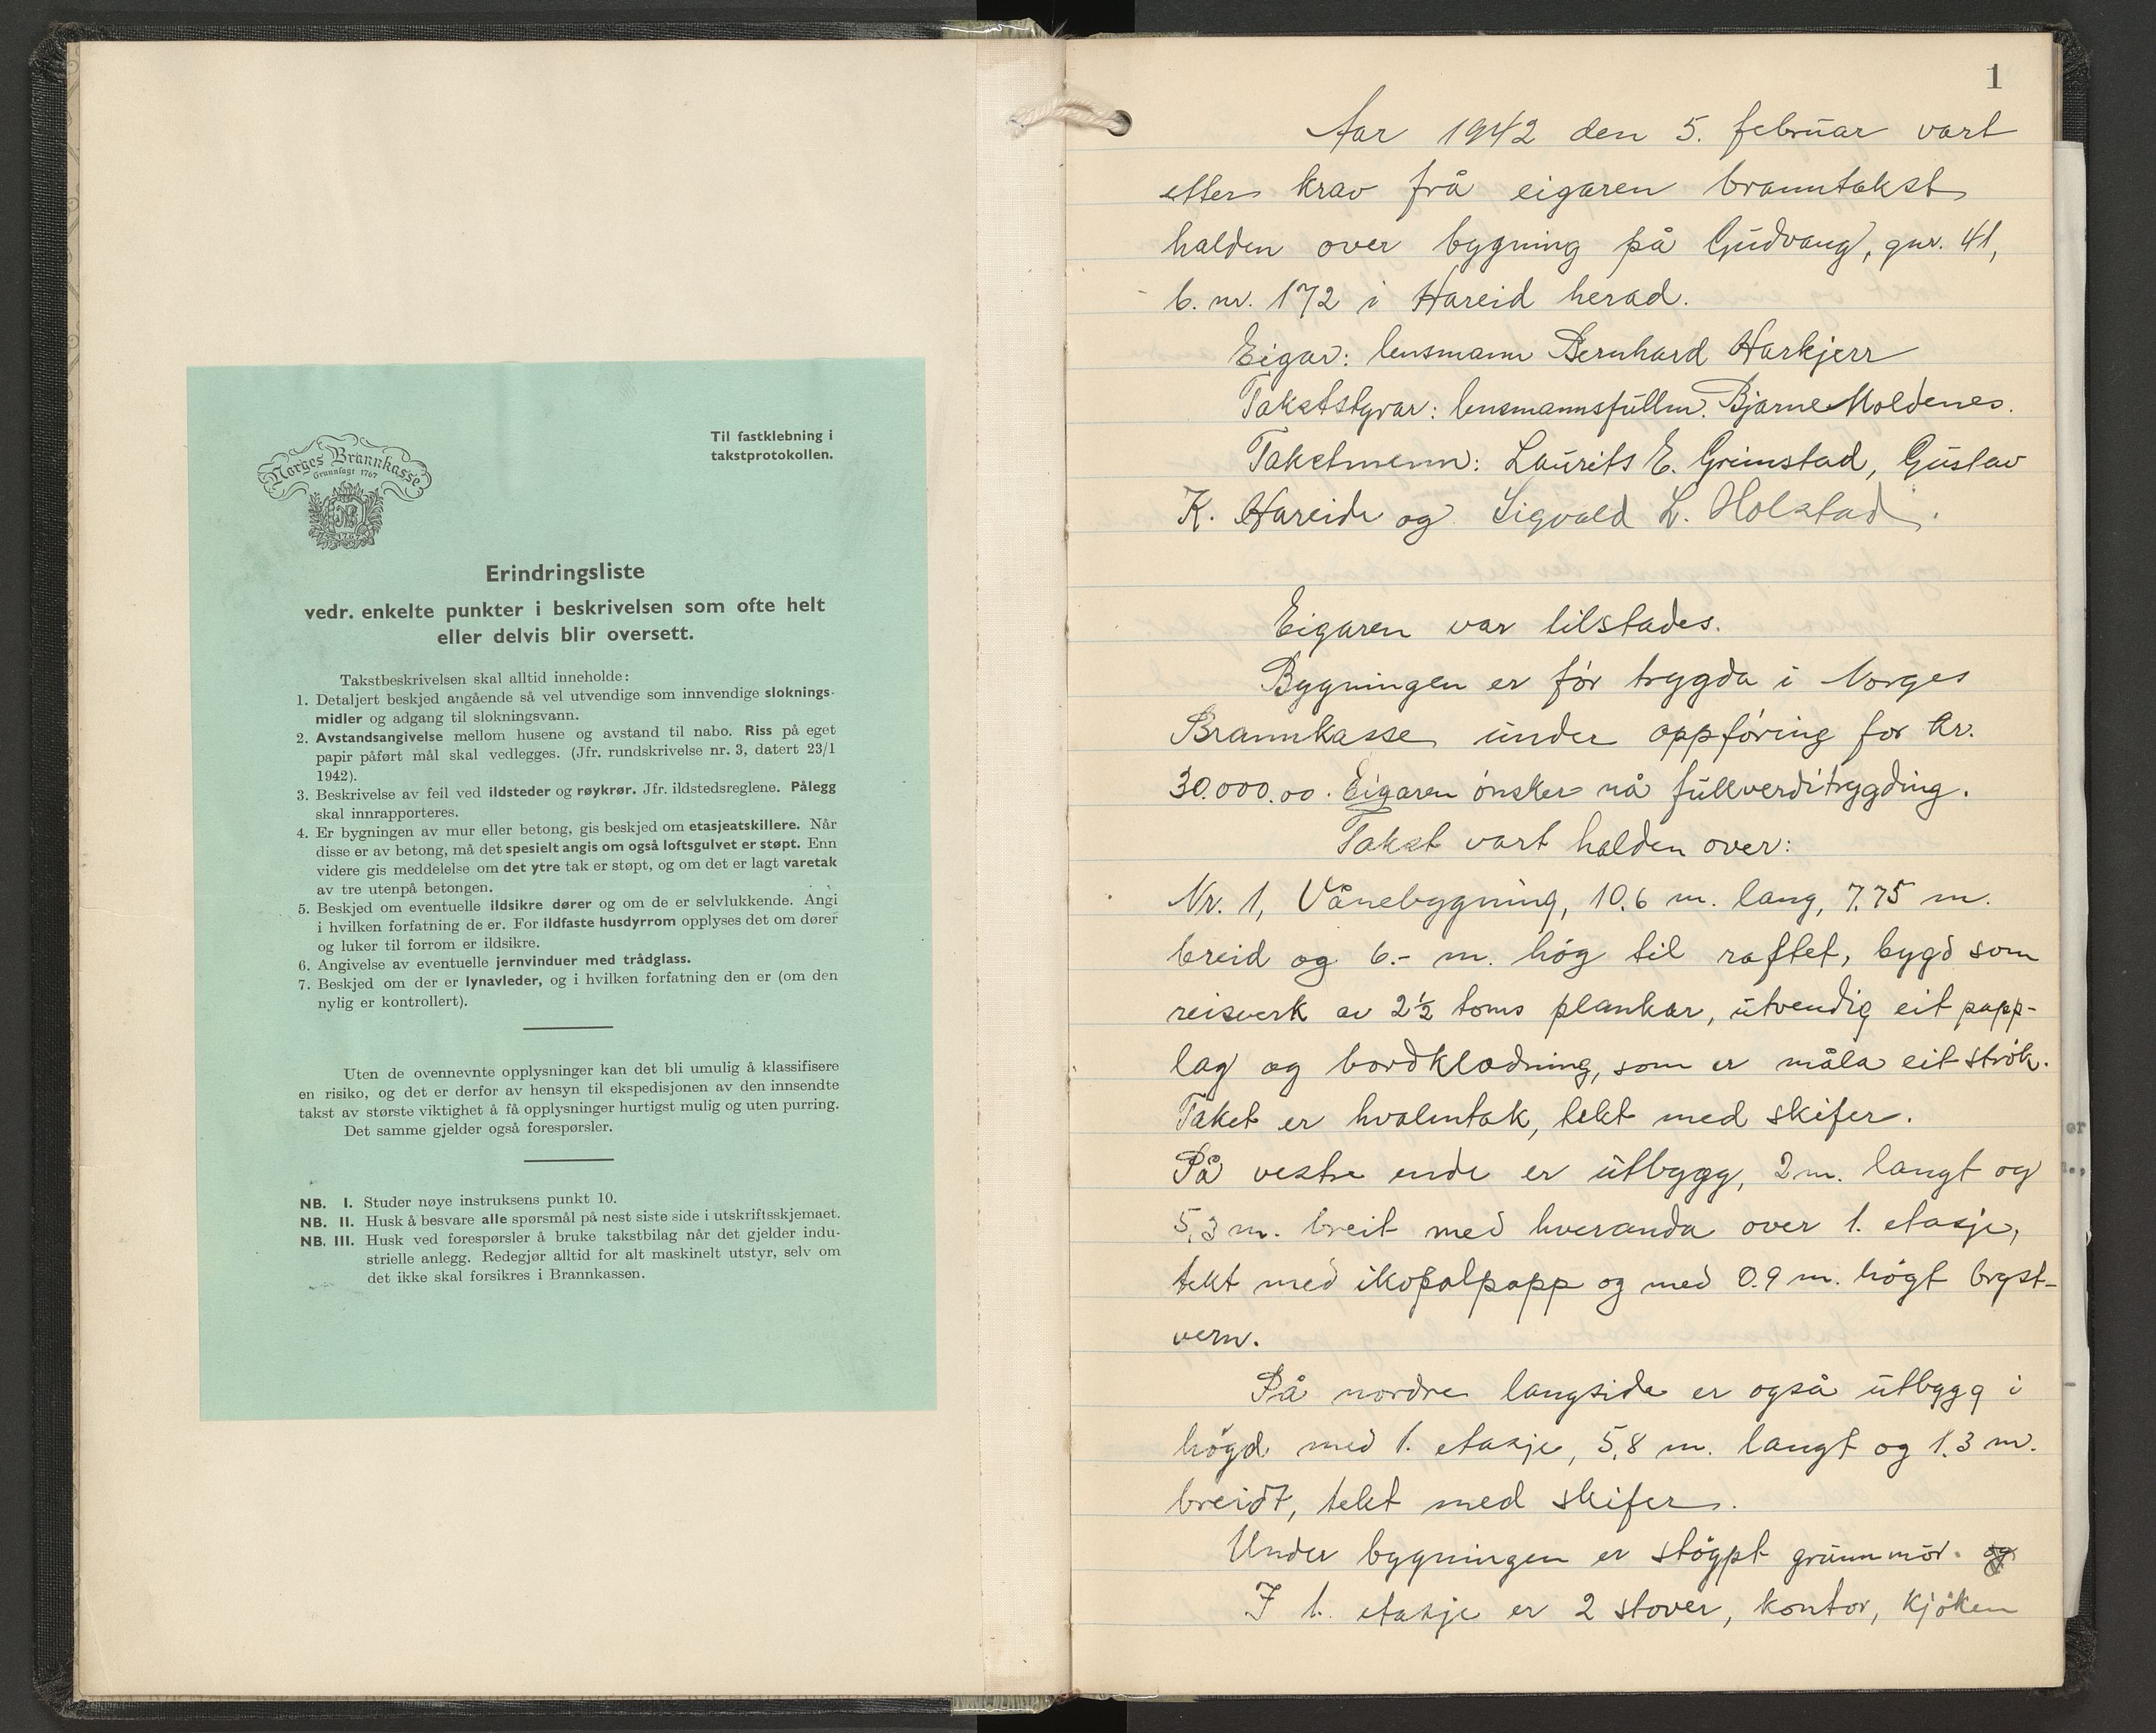 Norges Brannkasse
Grunnlagt 1767
Til fastklebning i
takstprotokollen.
Erindringsliste
vedr. enkelte punkter i beskrivelsen som ofte helt
eller delvis blir oversett.
Takstbeskrivelsen skal alltid inneholde:
1. Detaljert beskjed angående så vel utvendige som innvendige sloknings-
midler og adgang til slokningsvann.
2. Avstandsangivelse mellom husene og avstand til nabo. Riss på eget
papir påført mål skal vedlegges. (Jfr. rundskrivelse nr. 3, datert 23/1
1942).
3. Beskrivelse av feil ved ildsteder og røykrør. Jfr. ildstedsreglene. Pålegg
skal innrapporteres.
4. Er bygningen av mur eller betong, gis beskjed om etasjeatskillere. Når
disse er av betong, må det spesielt angis om også loftsgulvet er støpt. Enn
videre gis meddelelse om det ytre tak er støpt, og om det er lagt varetak
av tre utenpå betongen.
5. Beskjed om eventuelle ildsikre dører og om de er selvlukkende. Angi
i hvilken forfatning de er. For ildfaste husdyrrom opplyses det om dører
og luker til forrom er ildsikre.
6. Angivelse av eventuelle jernvinduer med trådglass.
7. Beskjed om der er lynavleder, og i hvilken forfatning den er (om den
nylig er kontrollert).
Uten de ovennevnte opplysninger kan det bli umulig å klassifisere
en risiko, og det er derfor av hensyn til ekspedisjonen av den innsendte
takst av største viktighet å få opplysninger hurtigst mulig og uten purring.
Det samme gjelder også forespørsler.
NB. I. Studer nøye instruksens punkt 10.
NB. II. Husk å besvare alle spørsmål på nest siste side i utskriftsskjemaet.
NB. III. Husk ved forespørsler å bruke takstbilag når det gjelder indu-
strielle anlegg. Redegjør alltid for alt maskinelt utstyr, selv om
det ikke skal forsikres i Brannkassen.
1
Aar 1942 den 5. februar vart
etter krav frå eigaren branntakst
halden over bygning på Gudvang, gnr. 41,
b. nr. 172 i Hareid herad.
Eigar: lensmann Bernhard Harkjerr
Takststyrar: lensmannsfullm. Bjarne Moldenes.
Takstmenn: Laurits E. Grimstad, Gustav
K. Hareide og Sigvald L. Holstad.
Eigaren var tilstades.
Bygningen er før trygda i Norges
Brannkasse under oppføring for kr.
30.000.00. Eigaren ønsker nå fullverditrygding.
Takst vart halden over:
Nr. 1, Vånebygning, 10.6 m. lang, 7.75 m.
breid og 6.- m. høg til raftet, bygd som
reisverk av 2½ toms plankar, utvendig eit papp-
lag og bordklædning, som er måla eit strøk.
Taket er hvalmtak, tekt med skifer.
På vestre ende er utbygg, 2 m. langt og
5,3 m. breit med hveranda over 1. etasje,
tekt med ikopalpapp og med 0.9 m. høgt bryst-
vern.
På nordre langside er også utbygg i
høgd med 1. etasje, 5,8 m. langt og 1.3 m.
breidt, tekt med skifer.
Under bygningen er støypt grunnmur. og
I 1. etasje er 2 stover, kontor, kjøken
er